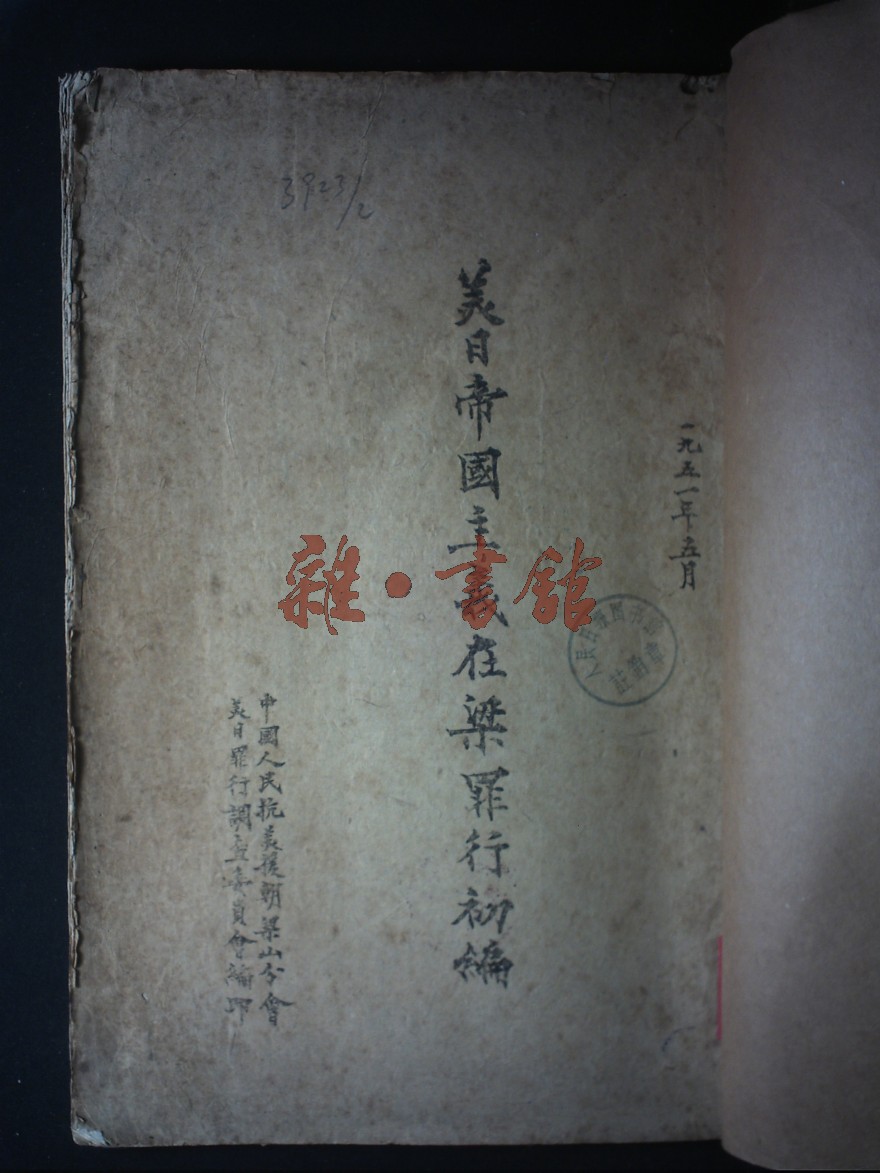 一九五一年五月
美日帝國主義在梁罪行初編
中國人民抗美援朝梁山分會
美日罪行調查委員會編印
3923/2
雜·書館